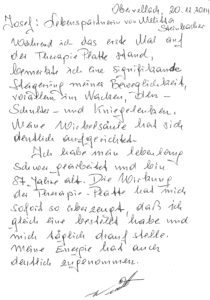 Obervellach, 20.12.2011
Josef: Lebenspartnerin von Melitta
Steinbacher
Während ich das erste Mal auf
der Therapie Platte stand,
bemerkte ich eine signifikante
Steigerung meiner Beweglichkeit,
vor allem im Nacken, Ober-
Schulter- und Kniegelenken.
Meine Wirbelsäule hat sich
deutlich aufgerichtet.
Ich habe man lebenslang
schwer gearbeitet und bin
87 Jahre alt. Die Wirkung
der Therapie-Platte hat mich
sofort so überzeugt, daß ich
gleich eine bestellt habe und
mich täglich drauf stelle.
Meine Energie hat auch
deutlich zugenommen.